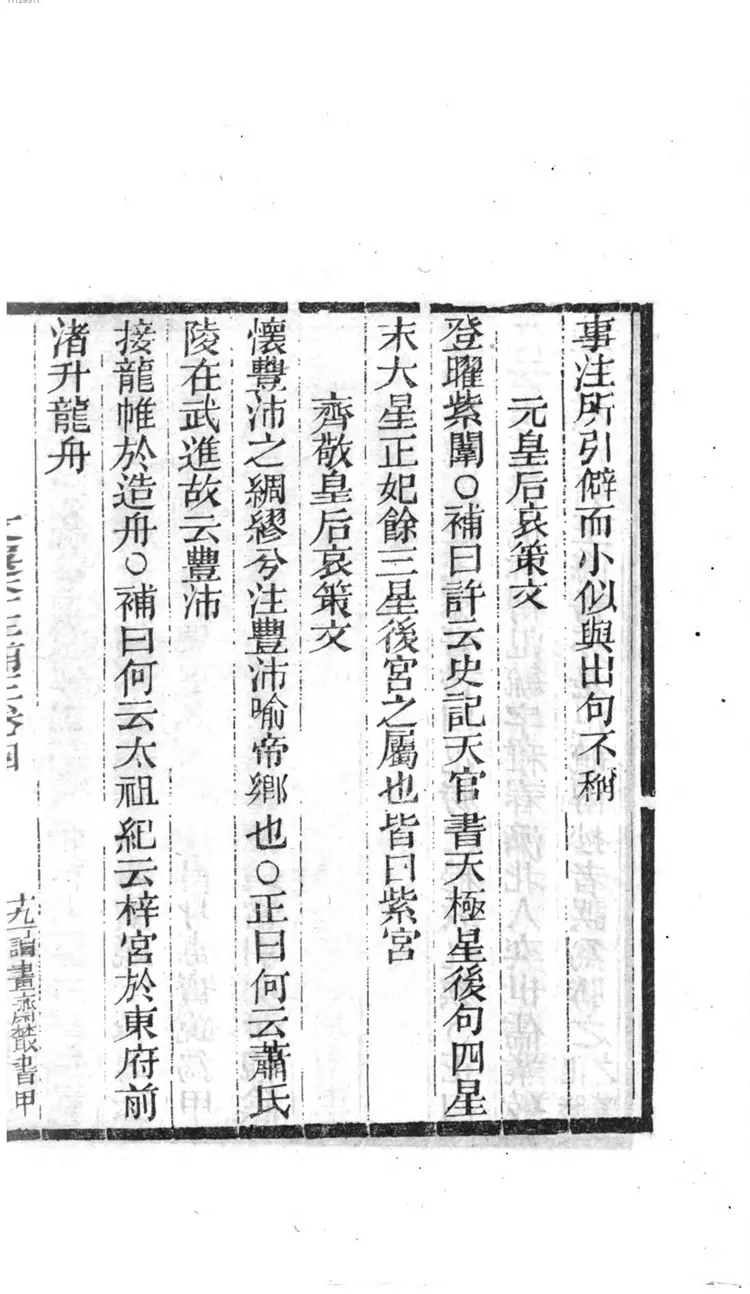 事注所引僻而小似與出句不稱
元皇后哀策文
登曜紫闈○補曰許云史記天官書天極星後句四星
末大星正妃餘三星後宮之屬也皆曰紫宮
齊敬皇后哀策文
懷豐沛之綢繆兮注豐沛喻帝鄉也○正曰何云蕭氏
陵在武進故云豐沛
接龍帷於造舟○補曰何云太祖紀云梓宮於東府前
渚升龍舟
卷四
十九
讀畫齋叢書甲
11129311